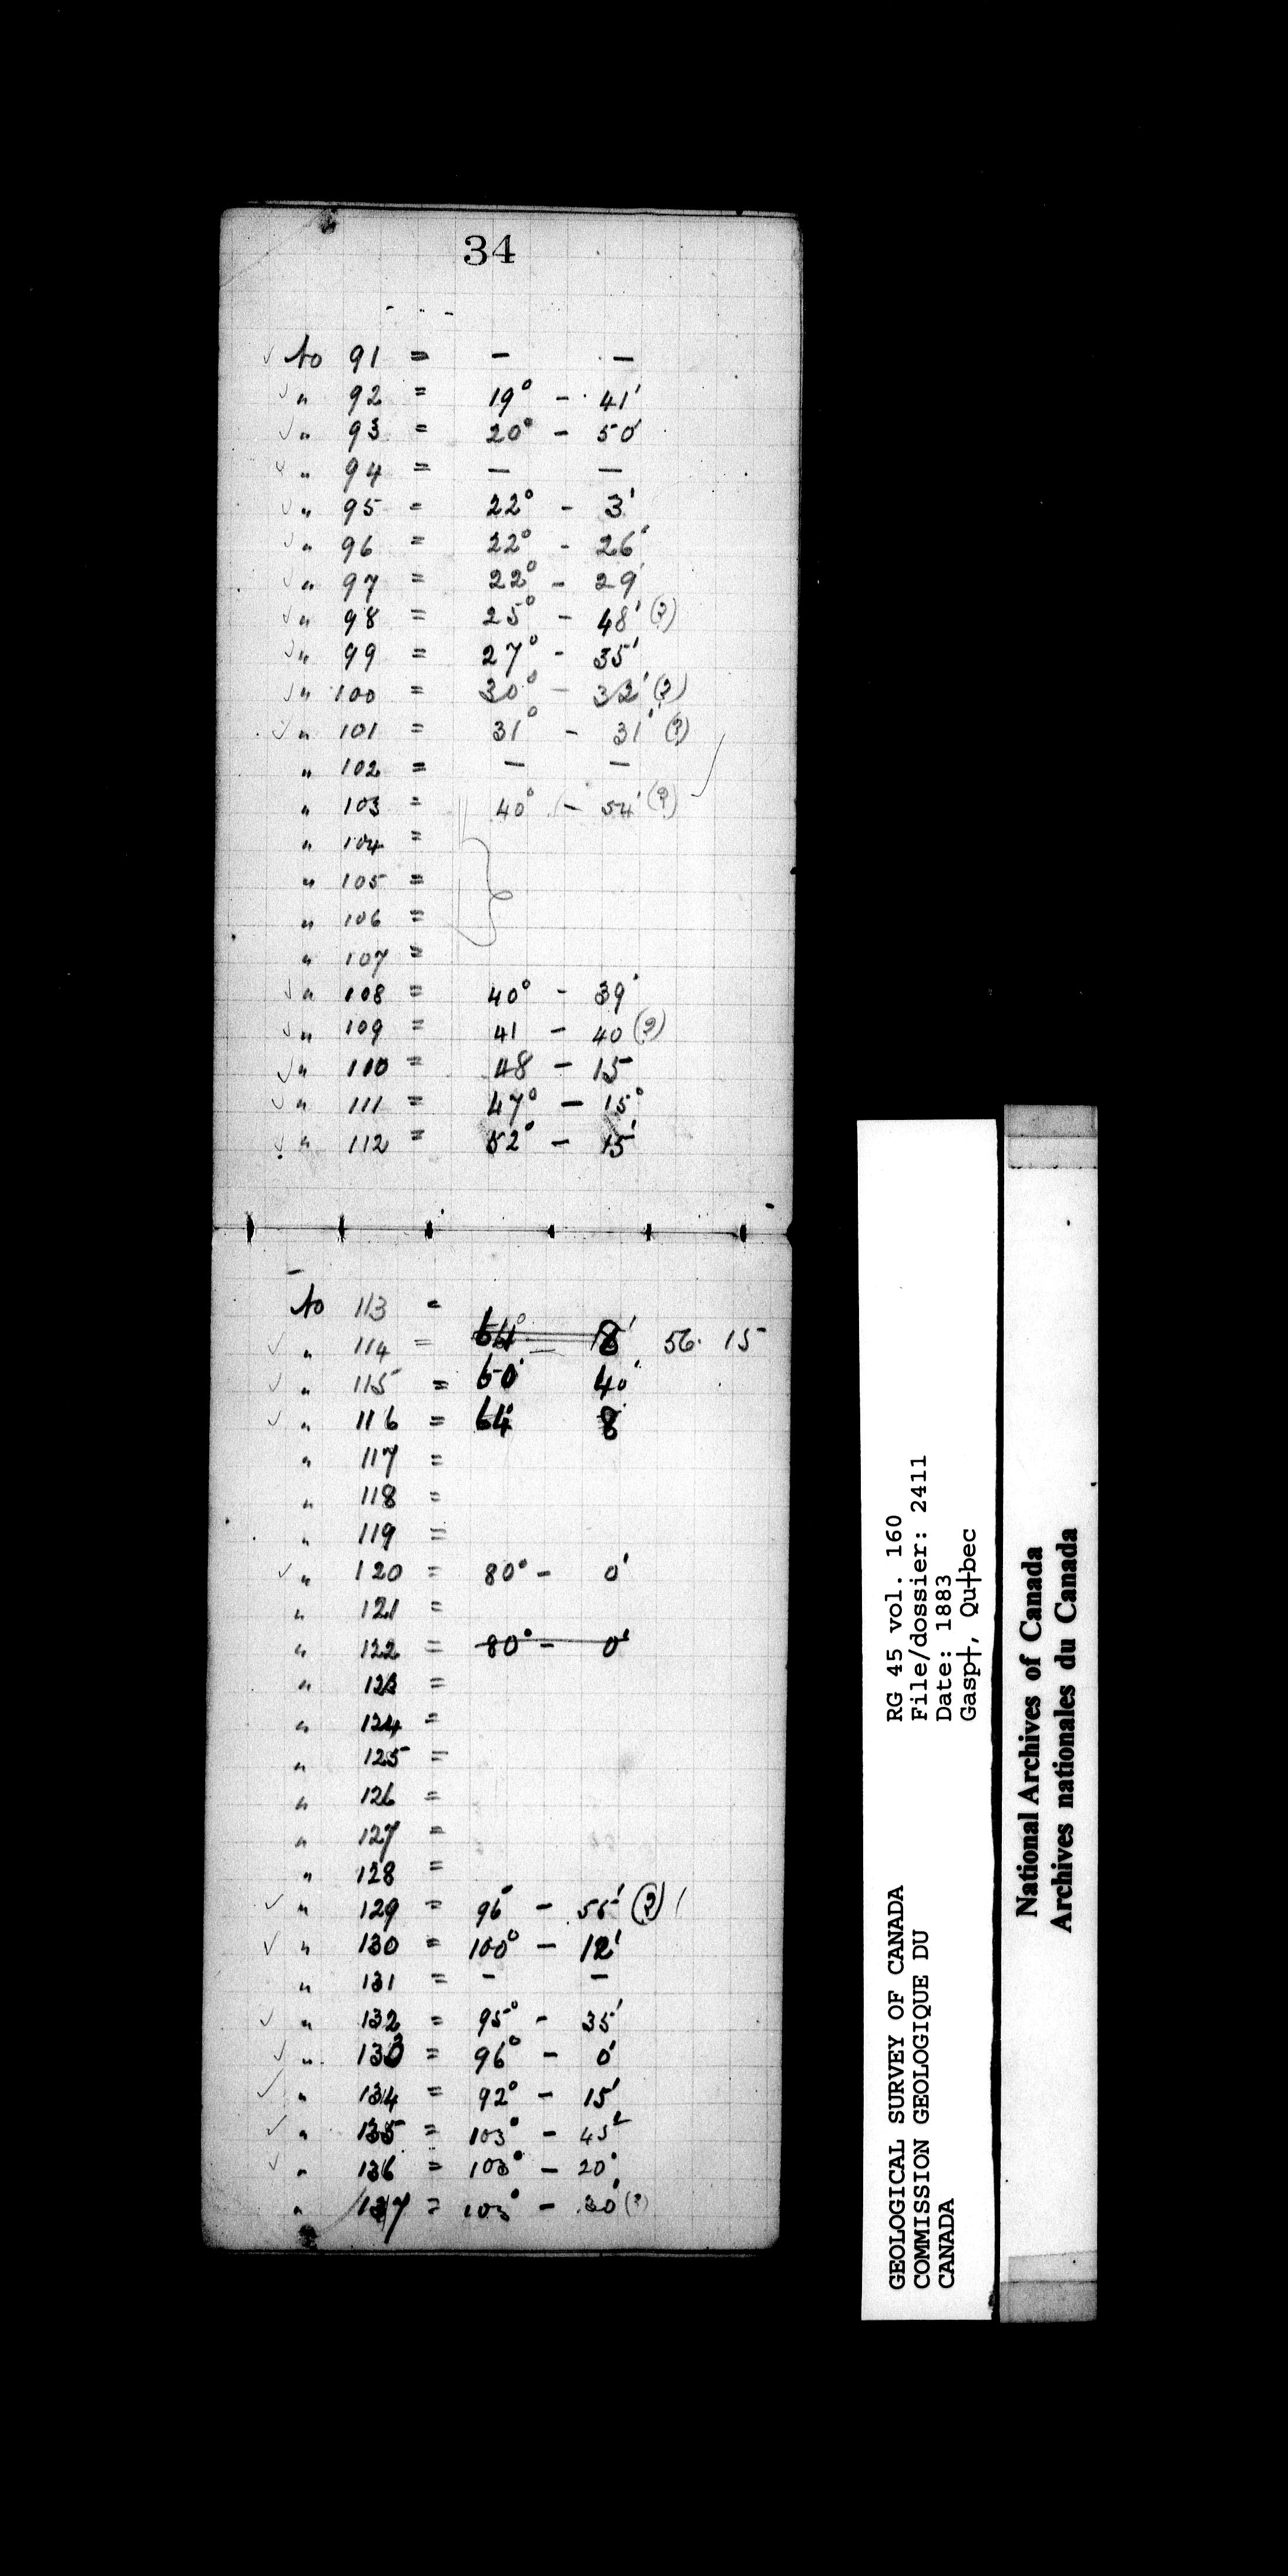 34
✓ to 91 = – –
✓ " 92 = 19° – 41'
✓ " 93 = 20° – 50'
✓ " 94 = – –
✓ " 95 = 22° – 3'
✓ " 96 = 22° – 26'
✓ " 97 = 22° – 29'
✓ " 98 = 25° – 48' (?)
✓ " 99 = 27° – 35'
✓ " 100 = 30° – 32' (?)
✓ " 101 = 31° – 31' (?)
" 102 = – –
" 103 = 40° – 54' (?)
" 104 =
" 105 =
" 106 =
" 107 =
✓ " 108 = 40° – 39'
✓ " 109 = 41 – 40 (?)
✓ " 110 = 48 – 15
✓ " 111 = 47° – 15°
✓ " 112 = 52° – 15'
to 113 =
✓ " 114 = 64° – 8' 56. 15
✓ " 115 = 60° 40'
✓ " 116 = 64° 8'
" 117 =
" 118 =
" 119 =
✓ " 120 = 80° – 0'
" 121 =
" 122 = 80° – 0'
" 123 =
" 124 =
" 125 =
" 126 =
" 127 =
" 128 =
✓ " 129 = 96° – 55' (?)
✓ " 130 = 100° – 12'
" 131 = – –
✓ " 132 = 95° – 35'
✓ " 133 = 96° – 0'
✓ " 134 = 92° – 15'
✓ " 135 = 103° – 45'
✓ " 136 = 103° – 20'
" 137 = 103° – 30' (?)
GEOLOGICAL SURVEY OF CANADA RG 45 vol. 160
COMMISSION GEOLOGIQUE DU File/dossier: 2411
CANADA Date: 1883
Gasp†, Qu†bec
National Archives of Canada
Archives nationales du Canada